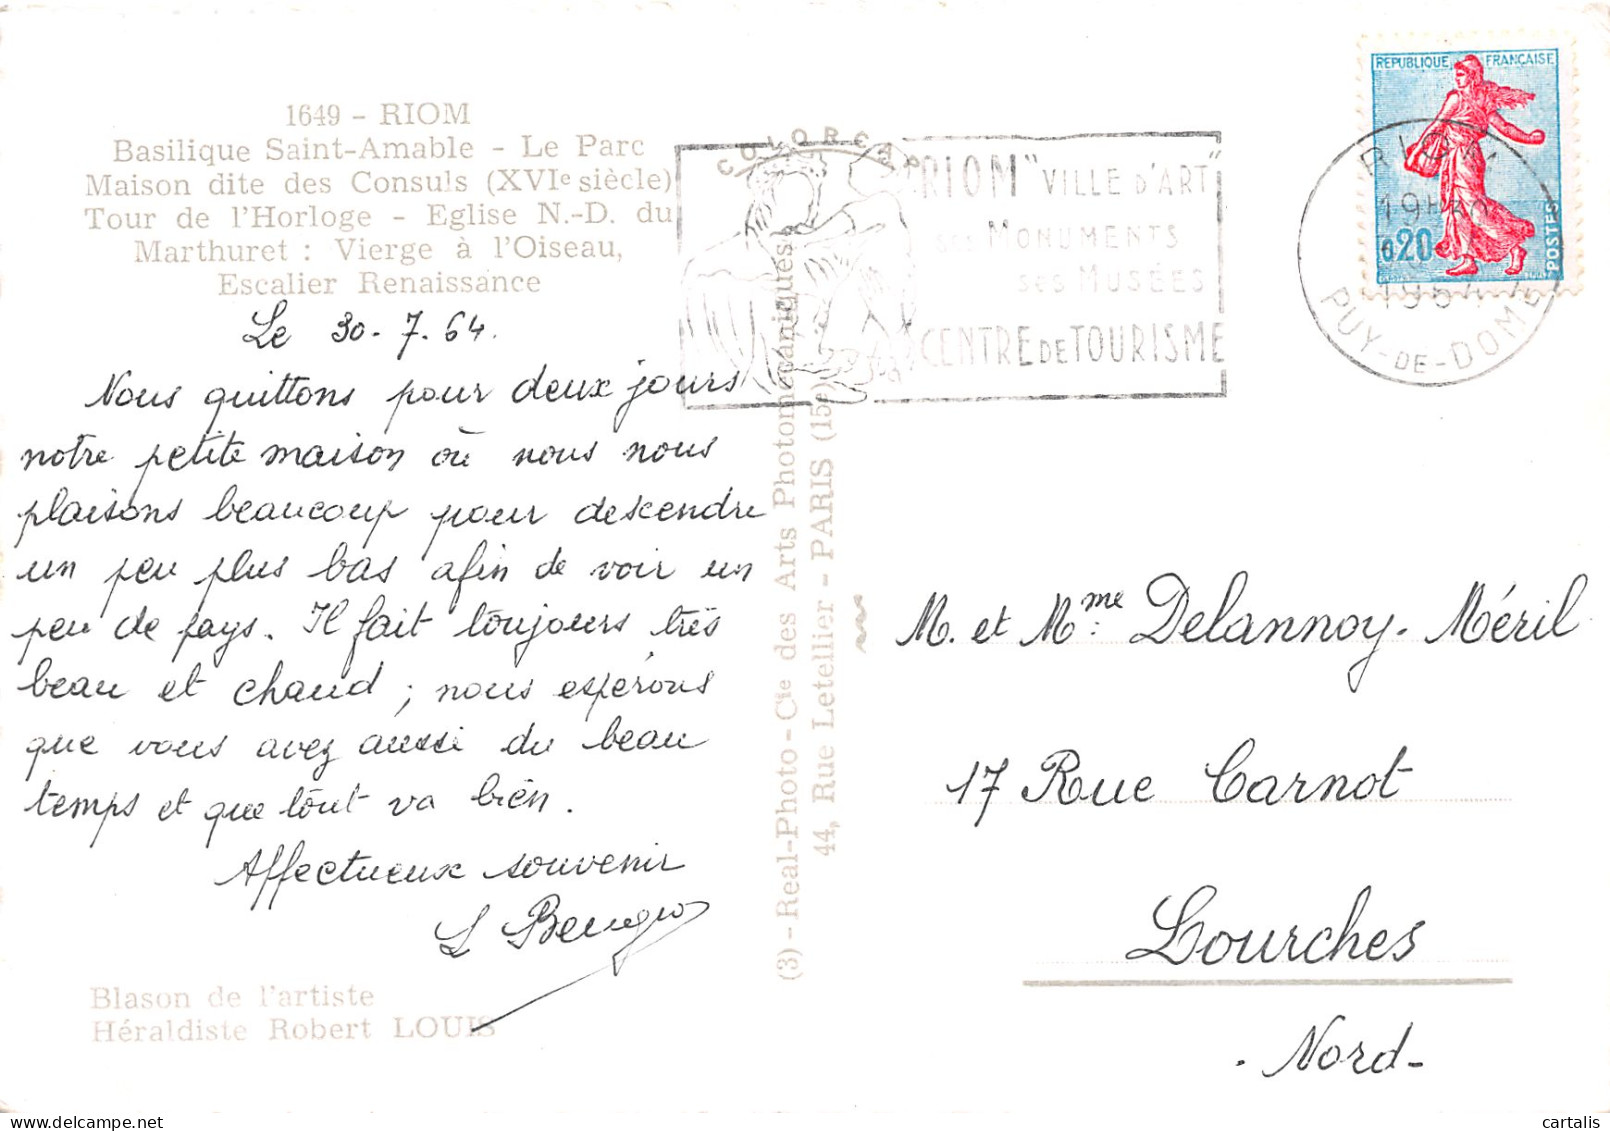 1649 - RIOM
Basilique Saint-Amable - Le Parc
Maison dite des Consuls (XVIe siècle)
Tour de l'Horloge - Eglise N.-D. du
Marthuret : Vierge à l'Oiseau,
Escalier Renaissance
Le 30-7.64.
Nous quittons pour deux jours
notre petite maison où nous nous
plaisons beaucoup pour descendre
un peu plus bas afin de voir un
peu de pays. Il fait toujours très
beau et chaud ; nous espérons
que vous avez aussi du beau
temps et que tout va bien.
Affectueux souvenir
Blason de l'artiste
Héraldiste Robert LOUIS
(3) - Real-Photo - Cie des Arts Photomécaniques
44, Rue Letellier - PARIS (15e)
COLORCAP
"RIOM" VILLE D'ART
ses MONUMENTS
ses MUSÉES
CENTRE DE TOURISME
REPUBLIQUE FRANÇAISE
0,20
POSTES
RIOM
19H
1964
PUY-DE-DOME
M. et Mme: Delannoy-Méril
17 Rue Carnot
Lourches
- Nord -
cartalis